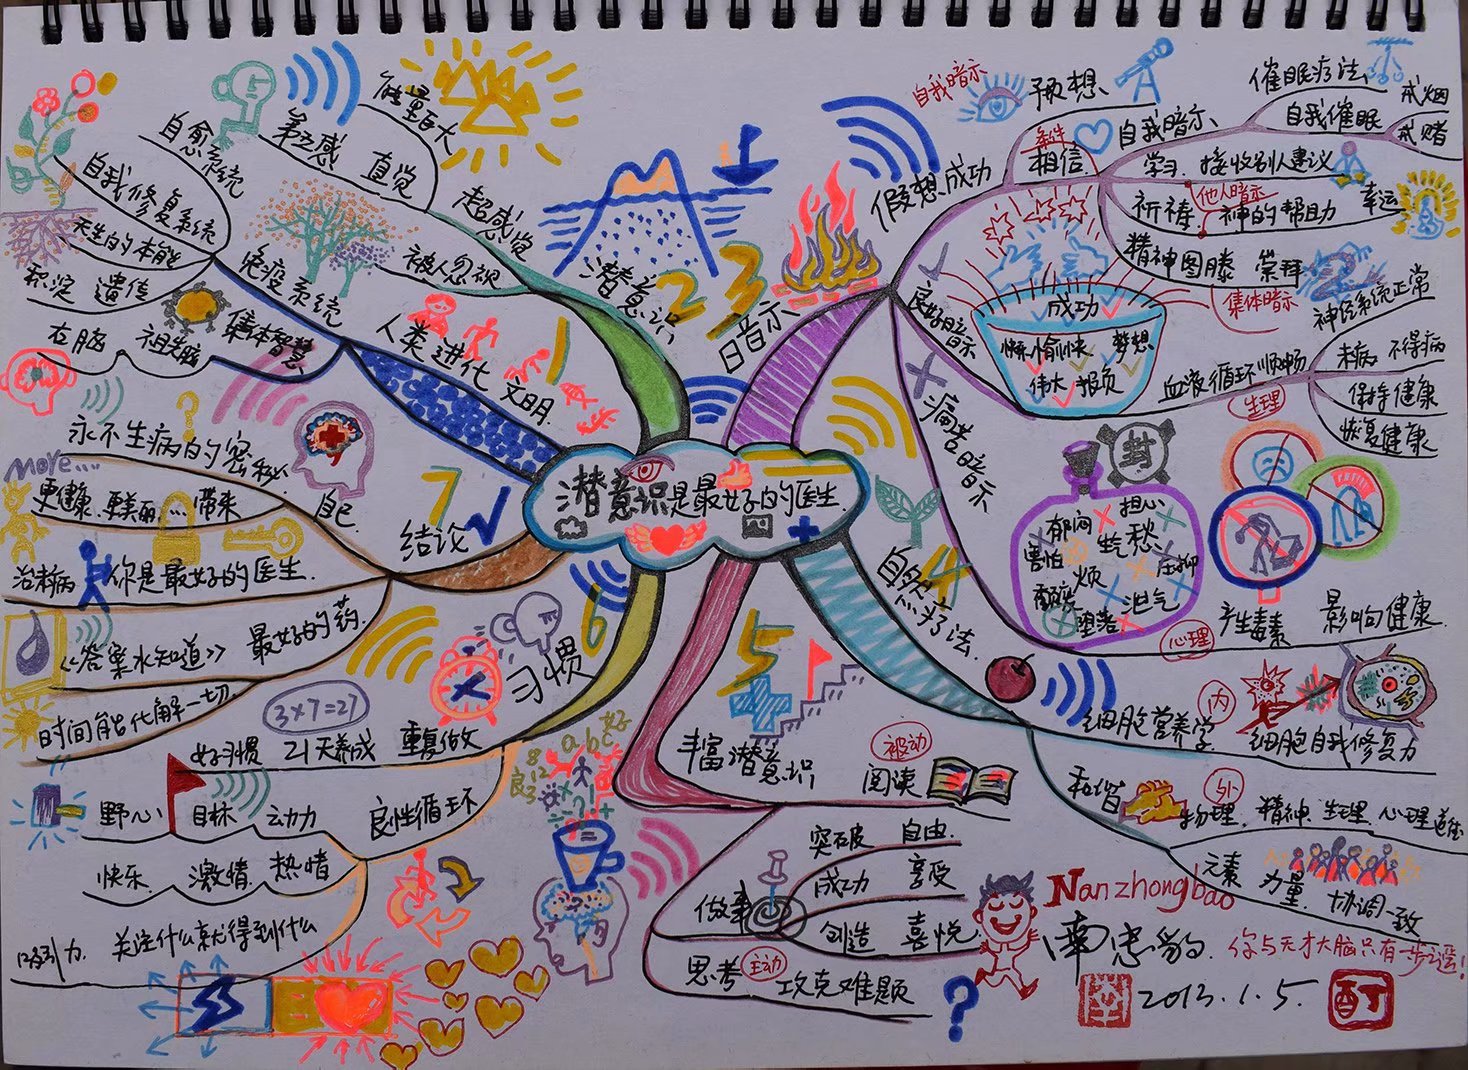 潜意识是最好的医生
1
人类进化 文明
免疫系统
自愈系统
自我修复系统
天生的本能
积淀 遗传
集体智慧
右脑 祖先脑
2
潜意识
超感觉
能量巨大
第六感 直觉
被人忽视
3
暗示
假想成功
预想
自我暗示
相信
条件
自我暗示
催眠疗法
自我催眠
戒烟
戒赌
学习 接收别人建议
祈祷 神的帮助
他人暗示
幸运
精神图腾 崇拜
集体暗示
良好暗示
成功
愉快 梦想
伟大 抱负
血液循环顺畅
生理
神经系统正常
未病 不得病
保持健康
恢复健康
病态暗示
封
郁闷 担心
害怕 生气 愁
烦 压抑
泄气
堕落
心理
产生毒素 影响健康
4
自然疗法
细胞营养学
内
细胞自我修复力
和谐
外
物理 精神 生理 心理
元素 力量 协调一致
5
丰富潜意识
被动
阅读
做事
突破 自由
成功 享受
创造 喜悦
思考
主动
攻克难题
?
6
习惯
重复做
21天养成
好习惯
3×7=21
良性循环
野心 目标 动力
快乐 激情 热情
吸引力 关注什么就得到什么
好
abc
良
7
结论
自己
永不生病的秘密
?
more....
更健康 更美丽 ... 带来
治未病 你是最好的医生
《答案水知道》 最好的药
时间能化解一切
Nanzhongbao
南忠豹
你与天才大脑只有一步之遥!
2013.1.5.